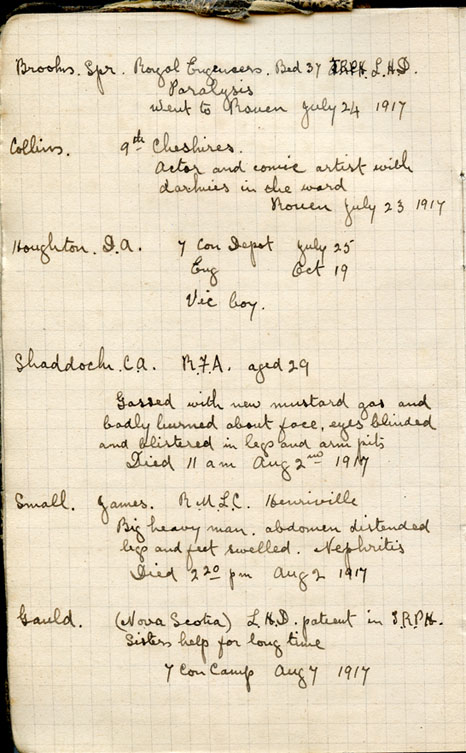 Brooks. Spr. Royal Engineers. Bed 37 L.H.D.
Paralysis
Went to Rouen July 24 1917
Collins. 9th Cheshires.
Actor and comic artist with
darkies in the ward
Rouen July 23 1917
Houghton. D.A. 7 Con Depot July 25
Eng Oct 19
Vic boy.
Shaddock. C.A. R.F.A. aged 29
Gassed with new mustard gas and
badly burned about face, eyes blinded
and blistered in legs and arm pits
Died 11 am Aug 2nd 1917
Small. James. R M L C. Henriville
Big heavy man. abdomen distended
legs and feet swelled. Nephritis
Died 2 20 pm Aug 2 1917
Gauld. (Nova Scotia) L.H.D. patient in S.R.P.H.
Sisters help for long time
7 Con Camp Aug 7 1917